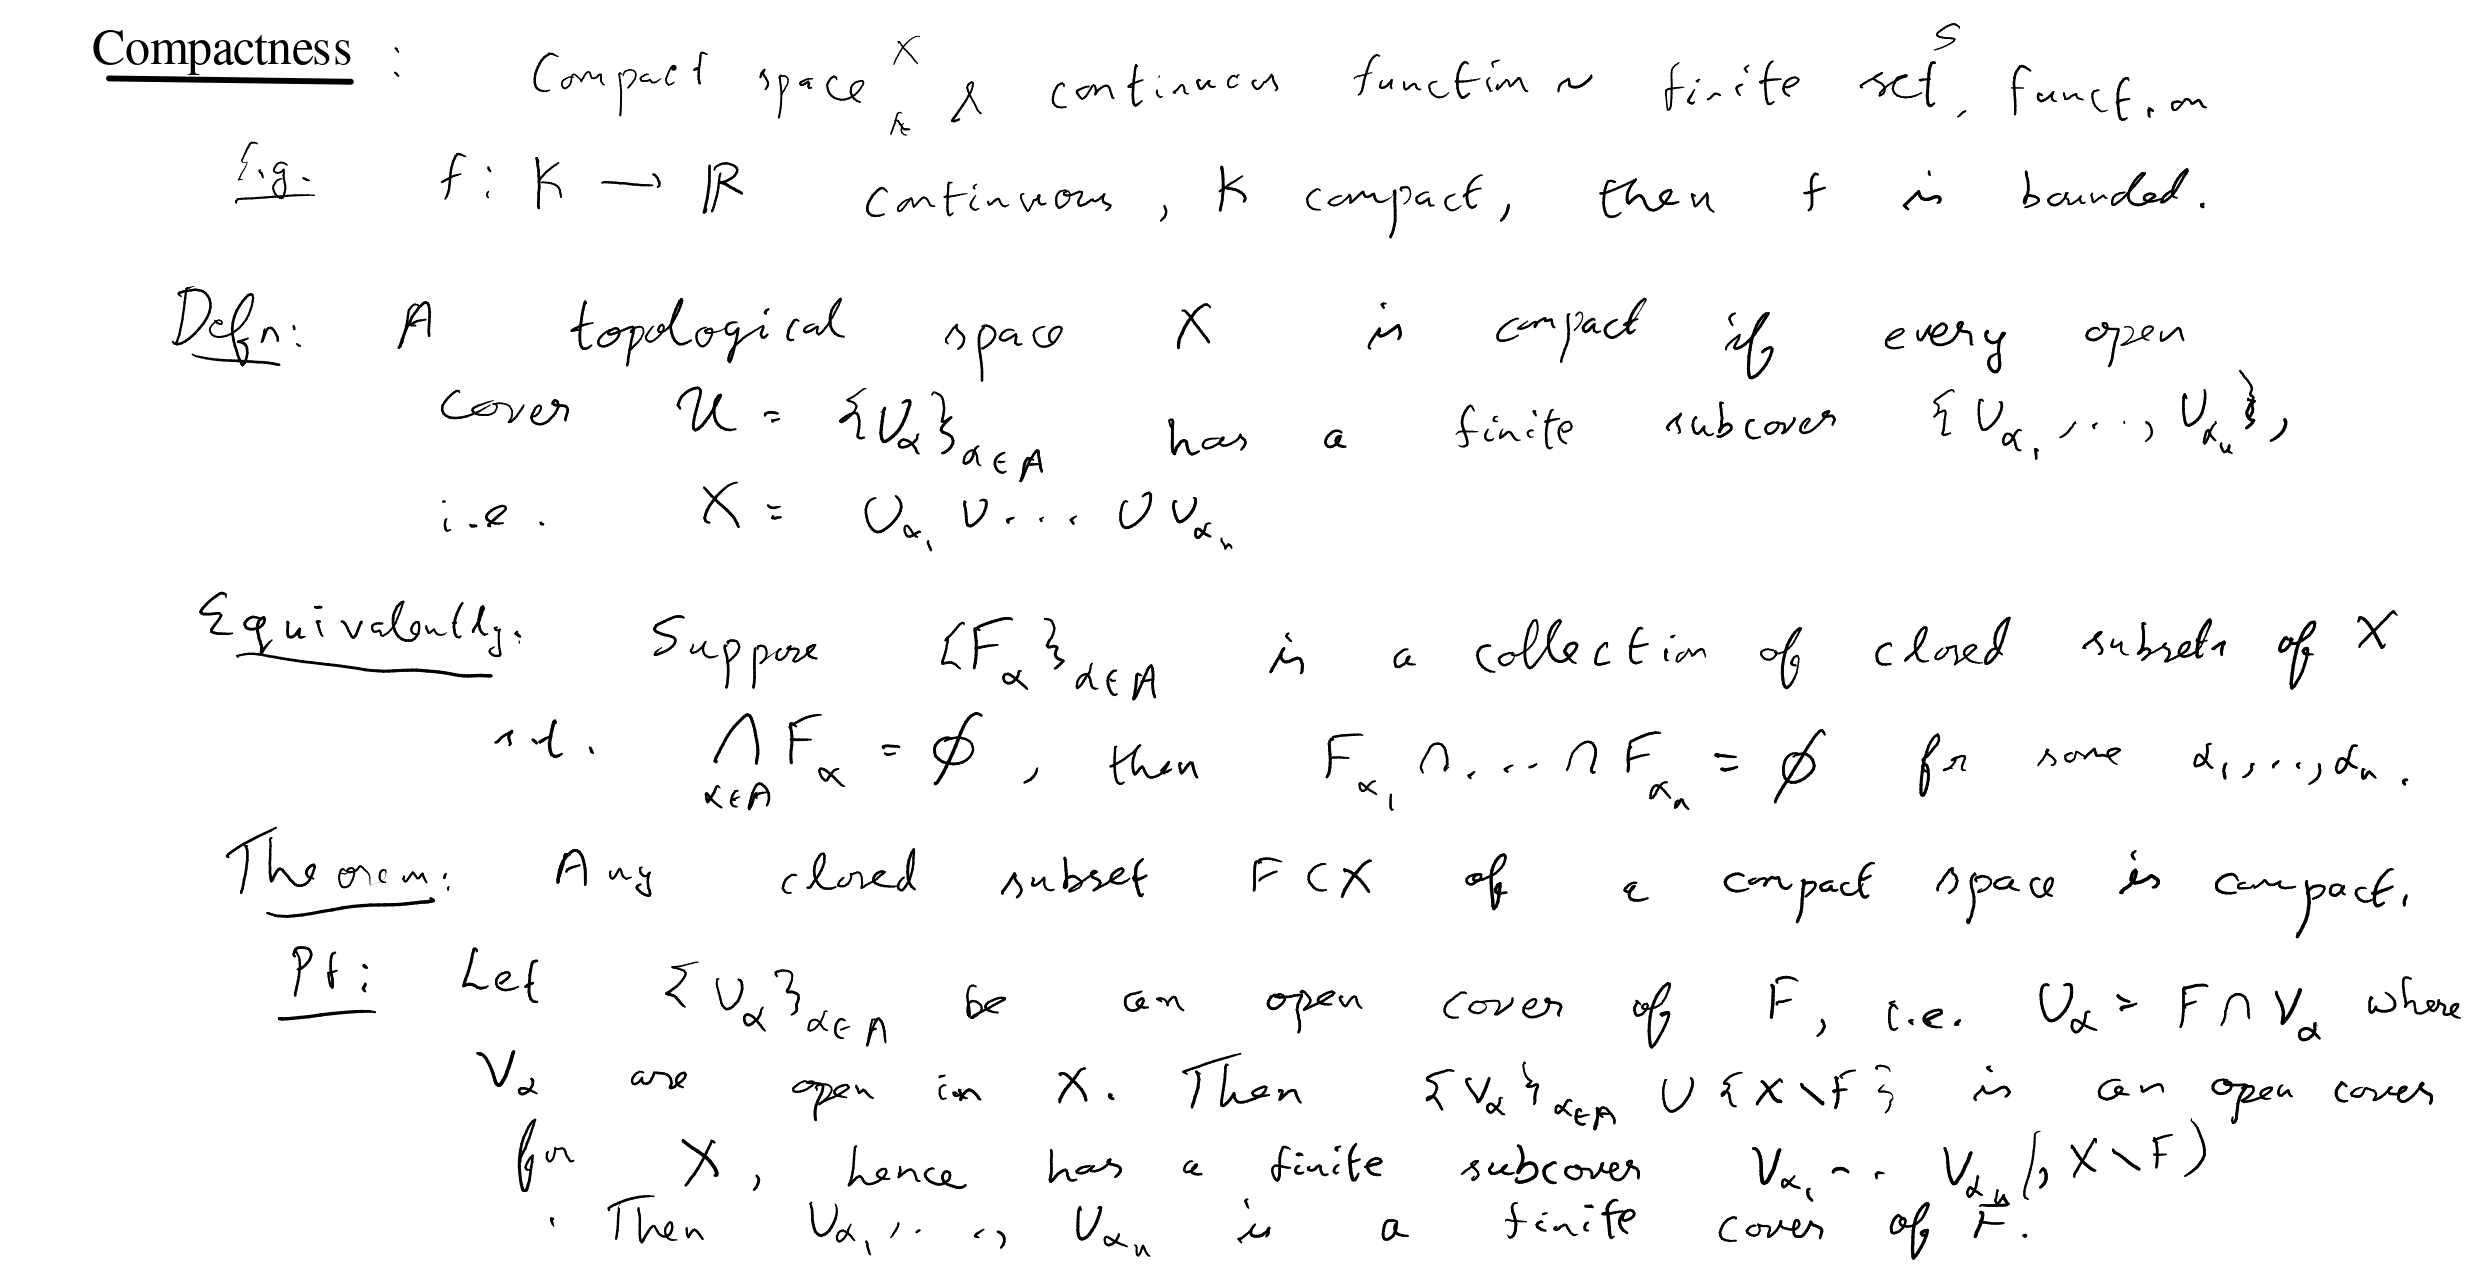 Compactness : Compact space X & continuous function ~ finite set S, function
E.g. f: K → ℝ continuous, K compact, then f is bounded.
Defn: A topological space X is compact if every open
cover 𝒰 = {U_α}_{α∈A} has a finite subcover {U_{α_1}, ..., U_{α_n}},
i.e. X = U_{α_1} ∪ ... ∪ U_{α_n}
Equivalently: Suppose {F_α}_{α∈A} is a collection of closed subsets of X
s.t. ⋂_{α∈A} F_α = ∅, then F_{α_1} ∩ ... ∩ F_{α_n} = ∅ for some α_1, ..., α_n.
Theorem: Any closed subset F ⊂ X of a compact space is compact.
Pf: Let {U_α}_{α∈A} be an open cover of F, i.e. U_α = F ∩ V_α where
V_α are open in X. Then {V_α}_{α∈A} ∪ {X \ F} is an open cover
for X, hence has a finite subcover V_{α_1} ... V_{α_n} (, X \ F)
. Then U_{α_1}, ..., U_{α_n} is a finite cover of F.